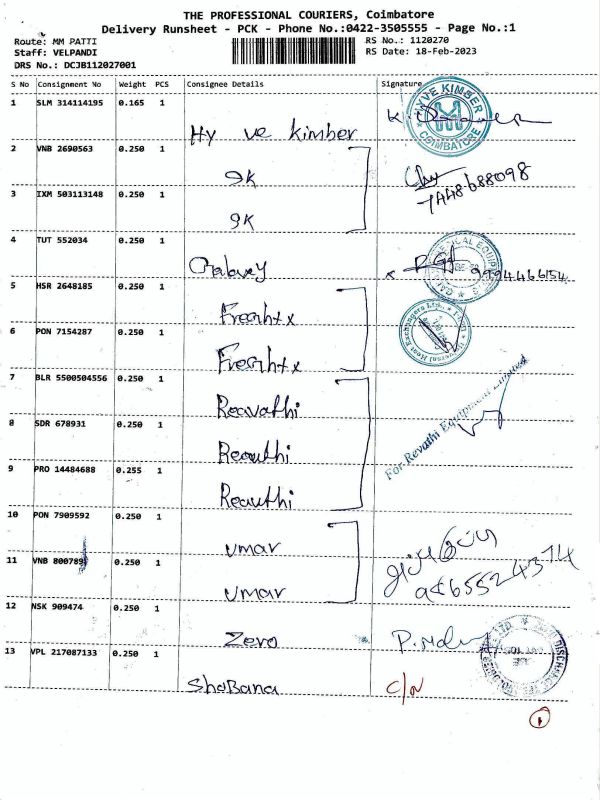 THE PROFESSIONAL COURIERS, Coimbatore
Delivery Runsheet - PCK - Phone No.:0422-3505555 - Page No.:1
Route: MM PATTI
RS No.: 1120270
Staff: VELPANDI
RS Date: 18-Feb-2023
DRS No.: DCJB112027001
S No Consignment No Weight PCS Consignee Details Signature
1 SLM 314114195 0.165 1
Hy ve kimber
HYVE KIMBER
COIMBATORE
2 VNB 2690563 0.250 1
9K
3 IXM 503113148 0.250 1
9K
7448688098
4 TUT 552034 0.250 1
9994466154
5 HSR 2648185 0.250 1
6 PON 7154287 0.250 1
7 BLR 5500504556 0.250 1
Reavathi
For Revathi Equipment Limited
8 SDR 678931 0.250 1
Reauthi
9 PRO 14484688 0.255 1
Reauthi
10 PON 7909592 0.250 1
umar
11 VNB 800789 0.250 1
umar
12 NSK 909474 0.250 1
Zero
13 VPL 217087133 0.250 1
ShaBana
C/N
1